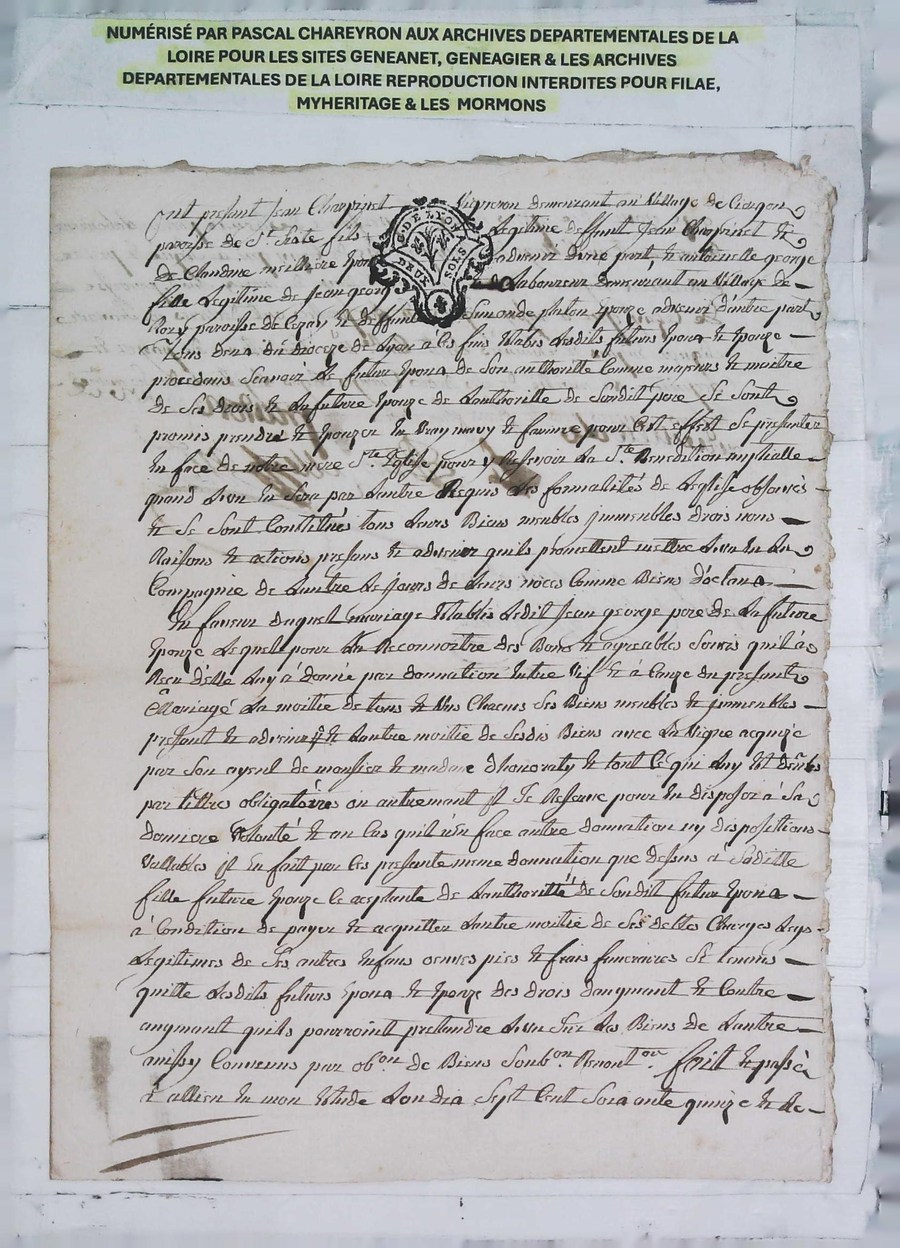 NUMÉRISÉ PAR PASCAL CHAREYRON AUX ARCHIVES DEPARTEMENTALES DE LA
LOIRE POUR LES SITES GENEANET, GENEAGIER & LES ARCHIVES
DEPARTEMENTALES DE LA LOIRE REPRODUCTION INTERDITES POUR FILAE,
MYHERITAGE & LES MORMONS
G. DE LYON
DEUX SOLS
ont presant Jean Chaprinet vigneron demeurant au village de
paroisse de St. fils Legitime deffunt Jean Chaprinet &
de Claudine meilliere advenir d'une part, & antoinette george
fille Legitime de Jean george Laboureur demeurant au village de
paroisse de Cezay & deffunte simonde epouze advenir d'autre part
tous deux du dioceze de Lyon à ces fins Lesdits futurs &
procedans sçavoir Le futur de son authorité comme majeur & maitre
de ses drois & La future epouze de Lauthoritté de sondit pere se sont
promis prendre & epouzer en vray mary & famme pour cet effest se presenter
en face de notre mere Ste. Eglise pour y La Ste. Benediction nuptialle
quand L'un en sera par Lautre Requis Les formalités de Leglise observés
& se sont Constitués tous Leurs Biens meubles jmmeubles drois noms
Raisons & actions presans & advenir quils promettent mettre L'un en La
Compagnie de Lautre Le jours de Leurs noces Comme Biens
En faveur duquel mariage Ledit Jean george pere de La future
epouze Lequel pour La Reconnoitre des Bons & agreables servis quil a
Recu d'elle Luy a donné par donnation entre vifs & à Cauze du presant
mariage La moitié de tous & Uns Chacuns ses Biens meubles & jmmeubles
presant & advenir & Lautre moitié de sesdis Biens avec La vigne acquize
par son ayeul de monsieur & madame dhonoraty & tout ce qui Luy est
par tittres obligatoires ou autrement jl se Reserve pour en dispozer à sa
derniere volonté & au Cas quil n'en face autre donnation ny dispositions
vallables jl en fait par ces presante meme donnation que dessus à sadille
fille future epouze ce aceptante de Lauthoritté de sondit futur
à Condition de payer & acquitter Lautre moitié de ses dettes Charges Legs
Legitimes de ses autres enfans oeuvres pies & frais funeraires se tenans
quitte Lesdits futurs & epouze des drois daugmant & Contre
augmant quils pourroint pretandre L'un sur Les Biens de Lautre
ainssy Convenus par obon. de Biens soubon. Renonton. fait & passé
à allieu en mon etude L'an dix sept Cent soixante quinze & Le